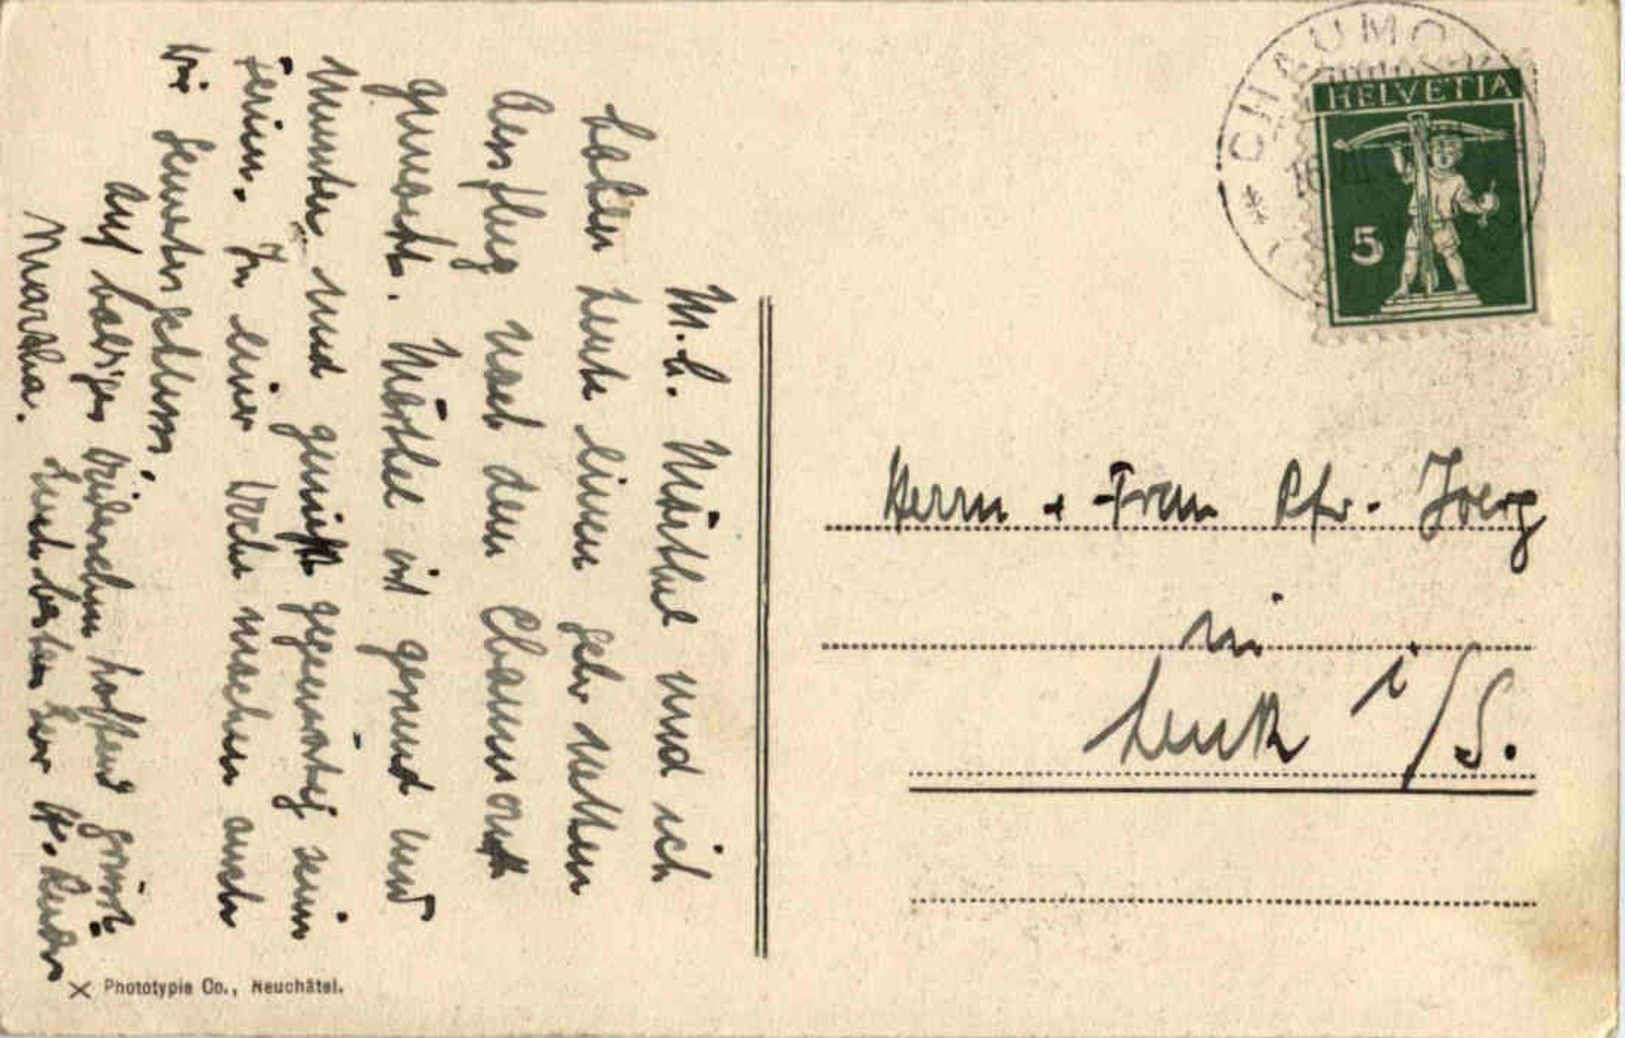 M. l. Märthel und ich
haben heute einen sehr netten
Ausflug nach dem Chaumont
gemacht. Märthel ist gesund und
munter, und genießt gegenwärtig seine
Ferien. In einer Woche machen auch
wir Semesterschluss.
Auf baldiges Wiedersehen hoffend grüsst
Euch bestens Eur
Martha.
Phototypie Co., Neuchâtel.
CHAUMO
HELVETIA
5
Herrn + Frau Pfr. Joerg
in
Lenk i/S.